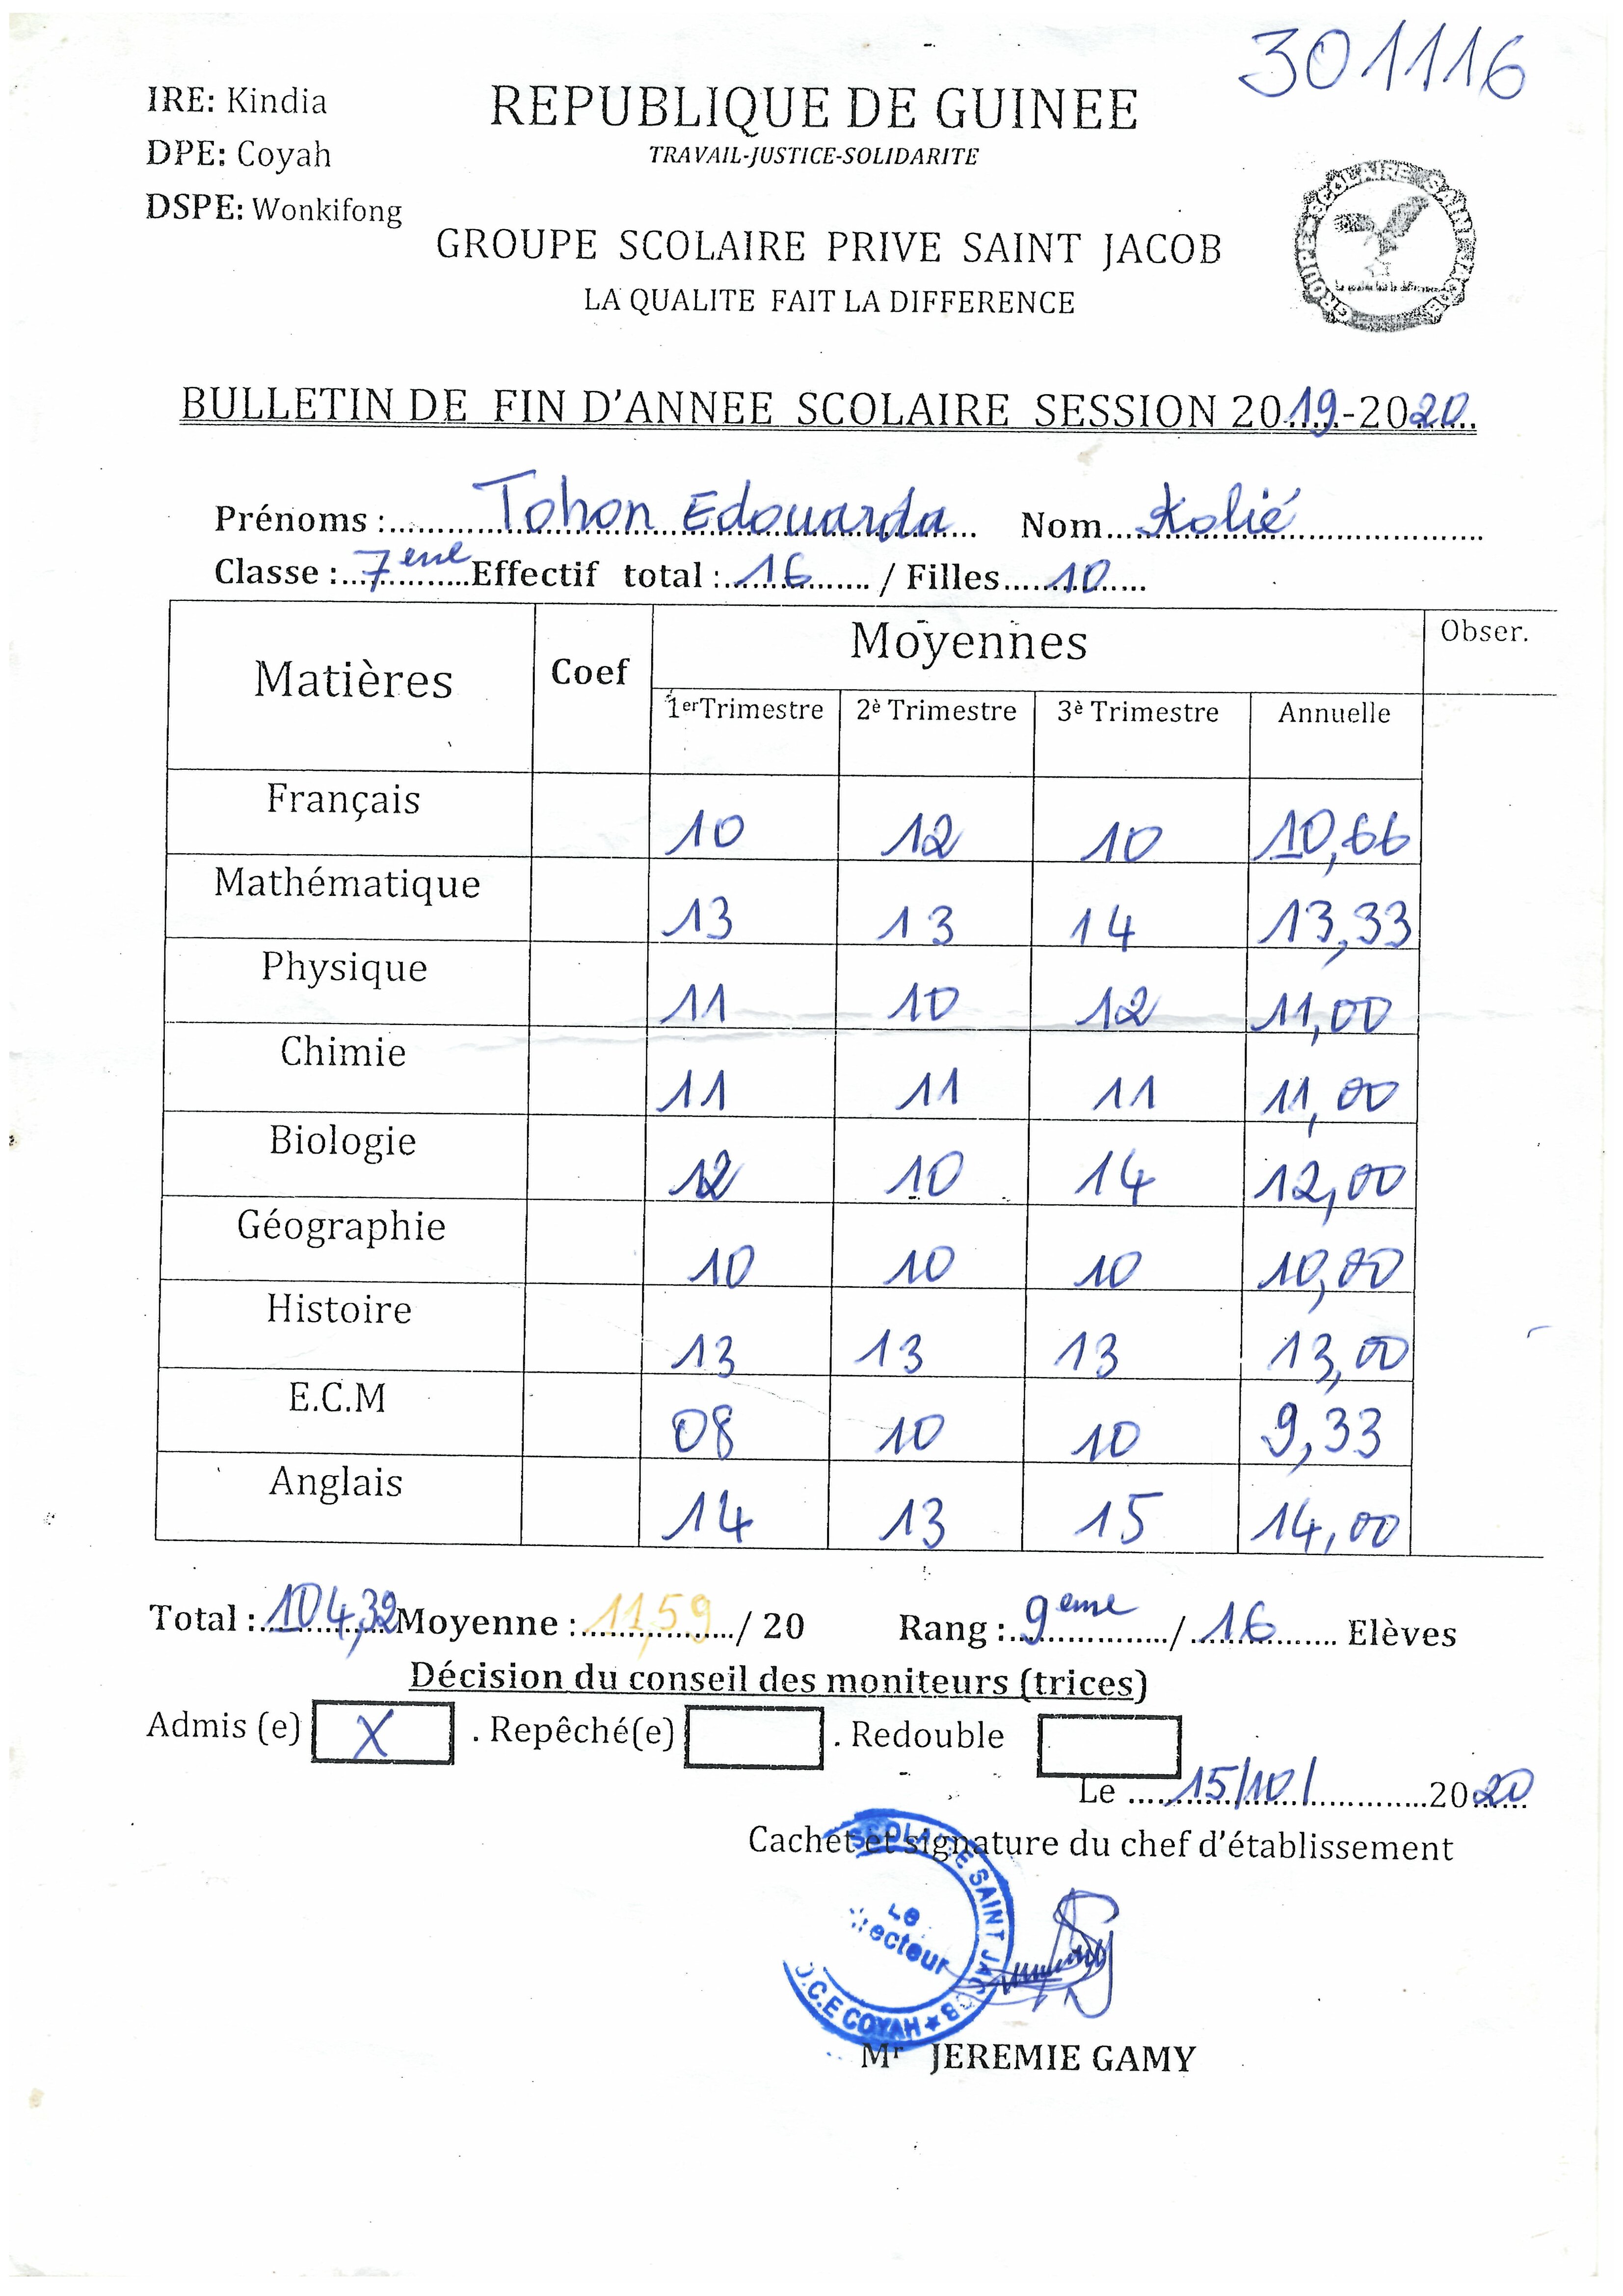 301116
IRE: Kindia
REPUBLIQUE DE GUINEE
DPE: Coyah
TRAVAIL-JUSTICE-SOLIDARITE
DSPE: Wonkifong
GROUPE SCOLAIRE SAINT JACOB
La qualité fait la différence
GROUPE SCOLAIRE PRIVE SAINT JACOB
LA QUALITE FAIT LA DIFFERENCE
BULLETIN DE FIN D'ANNEE SCOLAIRE SESSION 2019-2020
Prénoms : Tohon Edouarda Nom Kolié
Classe : 7eme Effectif total : 16 / Filles 10
Matières Coef Moyennes Obser.
1er Trimestre 2è Trimestre 3è Trimestre Annuelle
Français 10 12 10 10,66
Mathématique 13 13 14 13,33
Physique 11 10 12 11,00
Chimie 11 11 11 11,00
Biologie 12 10 14 12,00
Géographie 10 10 10 10,00
Histoire 13 13 13 13,00
E.C.M 08 10 10 9,33
Anglais 14 13 15 14,00
Total : 104,32 Moyenne : 11,59 / 20 Rang : 9eme / 16 Elèves
Décision du conseil des moniteurs (trices)
Admis (e) X . Repêché(e) . Redouble
Le 15/10/ 2020
Cachet et signature du chef d'établissement
SCOLAIRE SAINT JACOB
Le
ecteur
.C.E COYAH ★
Mr JEREMIE GAMY